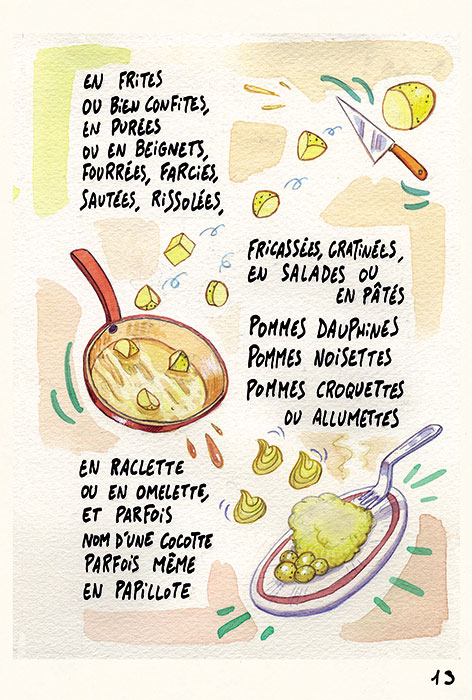 EN FRITES
OU BIEN CONFITES,
EN PURÉES
OU EN BEIGNETS,
FOURRÉES, FARCIES,
SAUTÉES, RISSOLÉES,
FRICASSÉES, GRATINÉES,
EN SALADES OU
EN PÂTÉS
POMMES DAUPHINES
POMMES NOISETTES
POMMES CROQUETTES
OU ALLUMETTES
EN RACLETTE
OU EN OMELETTE,
ET PARFOIS
NOM D'UNE COCOTTE
PARFOIS MÊME
EN PAPILLOTE
13